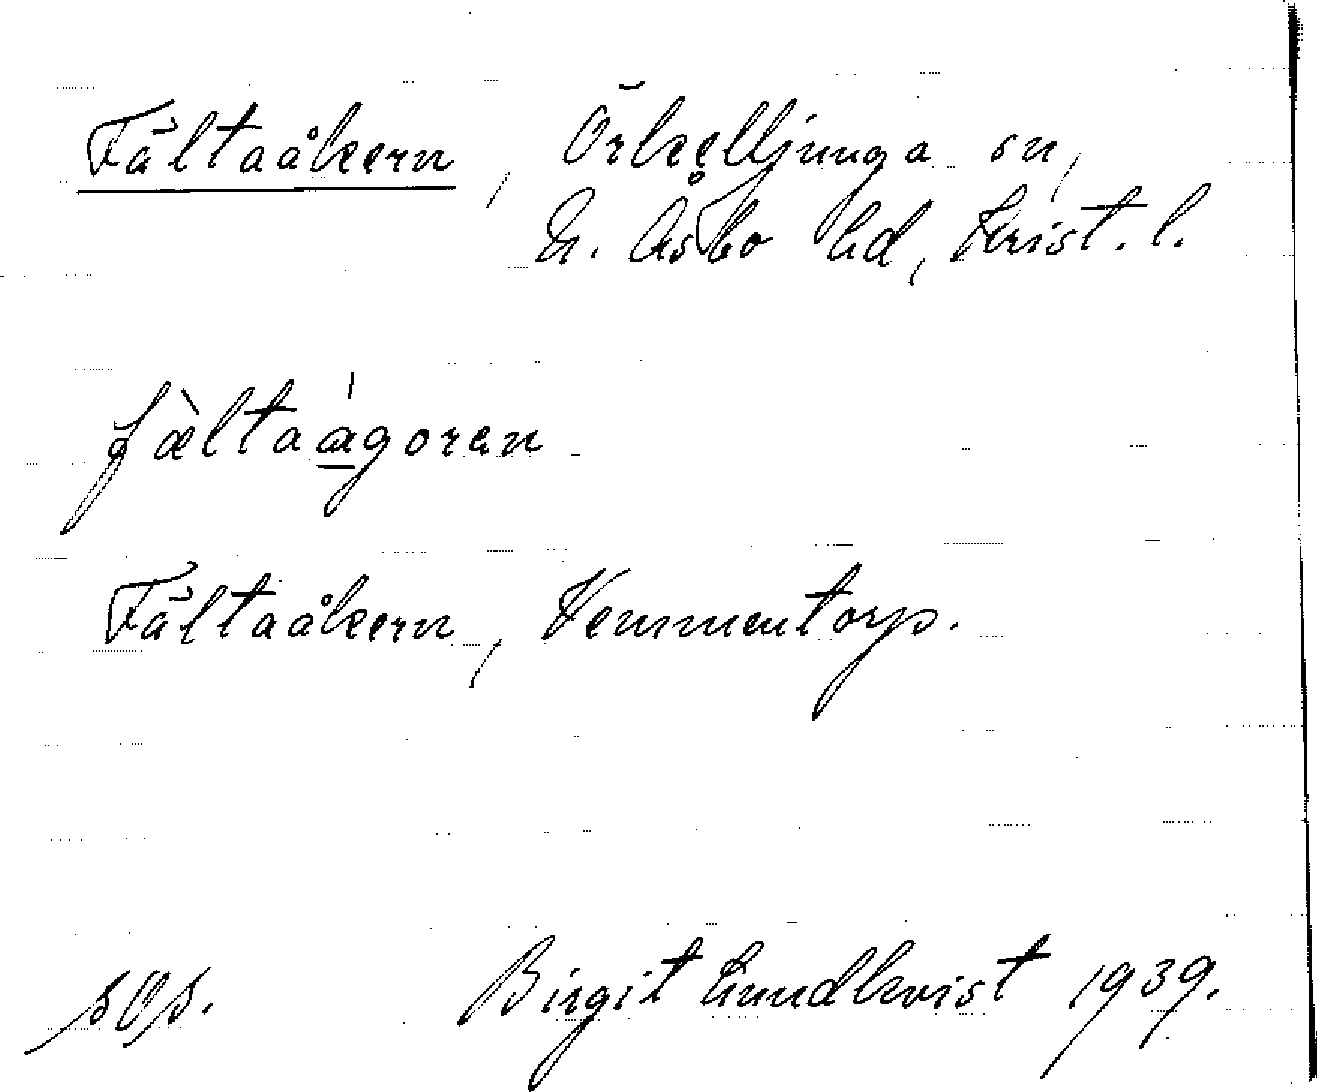 Fältaåkern, Örkelljunga sn,
N. Åsbo hd, Krist. l.
fæ̀ltaágoran
Fältaåkern, Vemmentorp.
Birgit Lundkvist 1939.